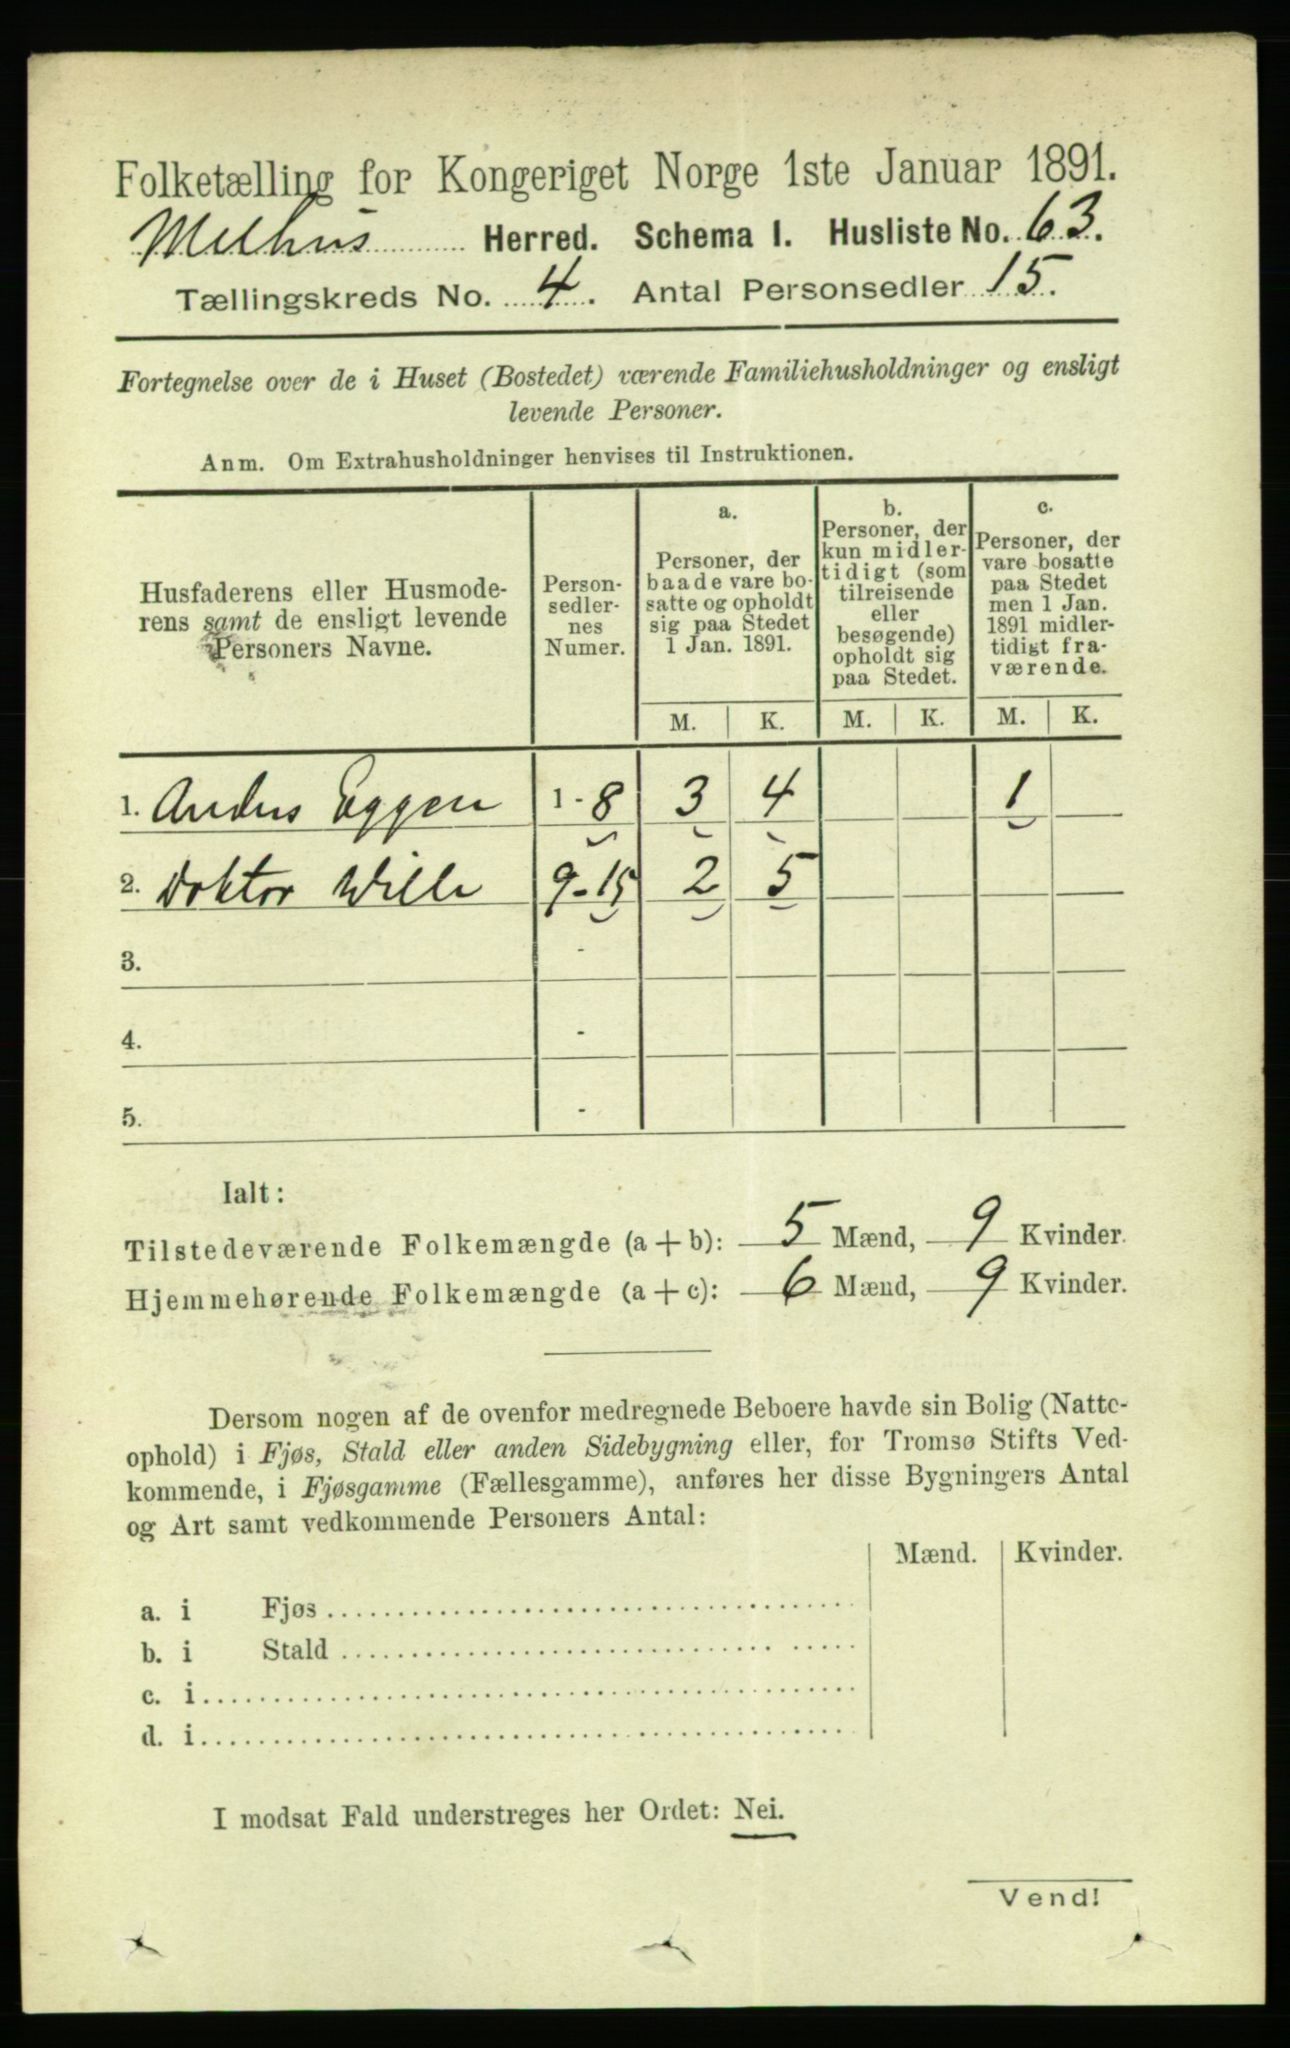 Folketælling for Kongeriget Norge 1ste Januar 1891.
Melhus Herred. Schema I. Husliste No. 63.
Tællingskreds No. 4. Antal Personsedler 15.
Fortegnelse over de i Huset (Bostedet) værende Familiehusholdninger og ensligt
levende Personer.
Anm. Om Extrahusholdninger henvises til Instruktionen.
Husfaderens eller Husmode-
rens samt de ensligt levende
Personers Navne.
Person-
sedler-
nes
Numer.
a.
Personer, der
baade vare bo-
satte og opholdt
sig paa Stedet
1 Jan. 1891.
b.
Personer, der
kun midler-
tidigt (som
tilreisende
eller
besøgende)
opholdt sig
paa Stedet.
c.
Personer, der
vare bosatte
paa Stedet
men 1 Jan.
1891 midler-
tidigt fra-
værende.
M. K. M. K. M. K.
1. Anders Eggen 1-8 3 4 1
2. Doktor Wille 9-15 2 5
3. -
4. -
5. -
Ialt:
Tilstedeværende Folkemængde (a + b): 5 Mænd, 9 Kvinder.
Hjemmehørende Folkemængde (a + c): 6 Mænd, 9 Kvinder.
Dersom nogen af de ovenfor medregnede Beboere havde sin Bolig (Natte-
ophold) i Fjøs, Stald eller anden Sidebygning eller, for Tromsø Stifts Ved-
kommende, i Fjøsgamme (Fællesgamme), anføres her disse Bygningers Antal
og Art samt vedkommende Personers Antal:
Mænd. Kvinder.
a. i Fjøs
b. i Stald
c. i
d. i
I modsat Fald understreges her Ordet: Nei.
Vend!